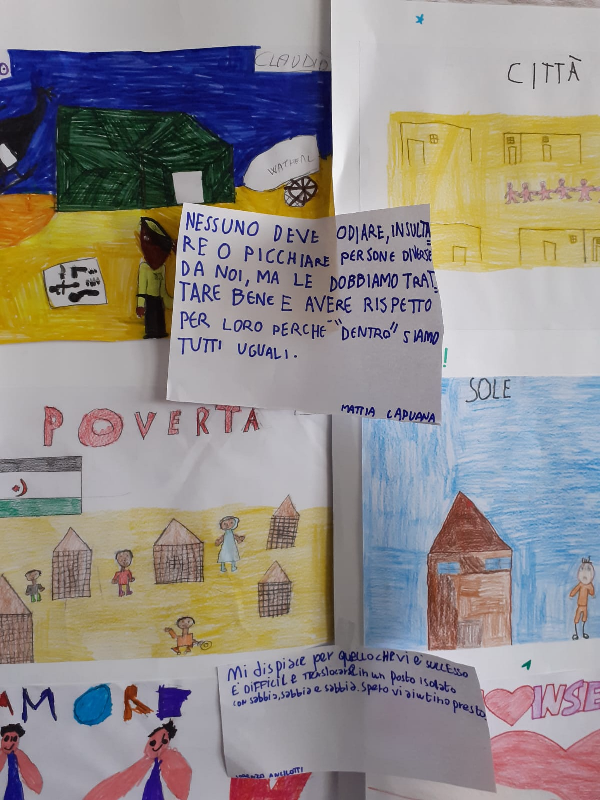 CLAUDIO
CITTÀ
WATHEAL
NESSUNO DEVE ODIARE, INSULTA
RE O PICCHIARE PERSONE DIVERSE
DA NOI, MA LE DOBBIAMO TRAT
TARE BENE E AVERE RISPETTO
PER LORO PERCHE "DENTRO" SIAMO
TUTTI UGUALI.
MATTIA CAPUANA
POVERTA
SOLE
Mi dispiace per quello che vi e successo
E DIFFICILE TRASLOCARE in un posto isolato
con sabbia, sabbia e sabbia. Spero vi aiutino presto
LORENZO
AMORE
INSE